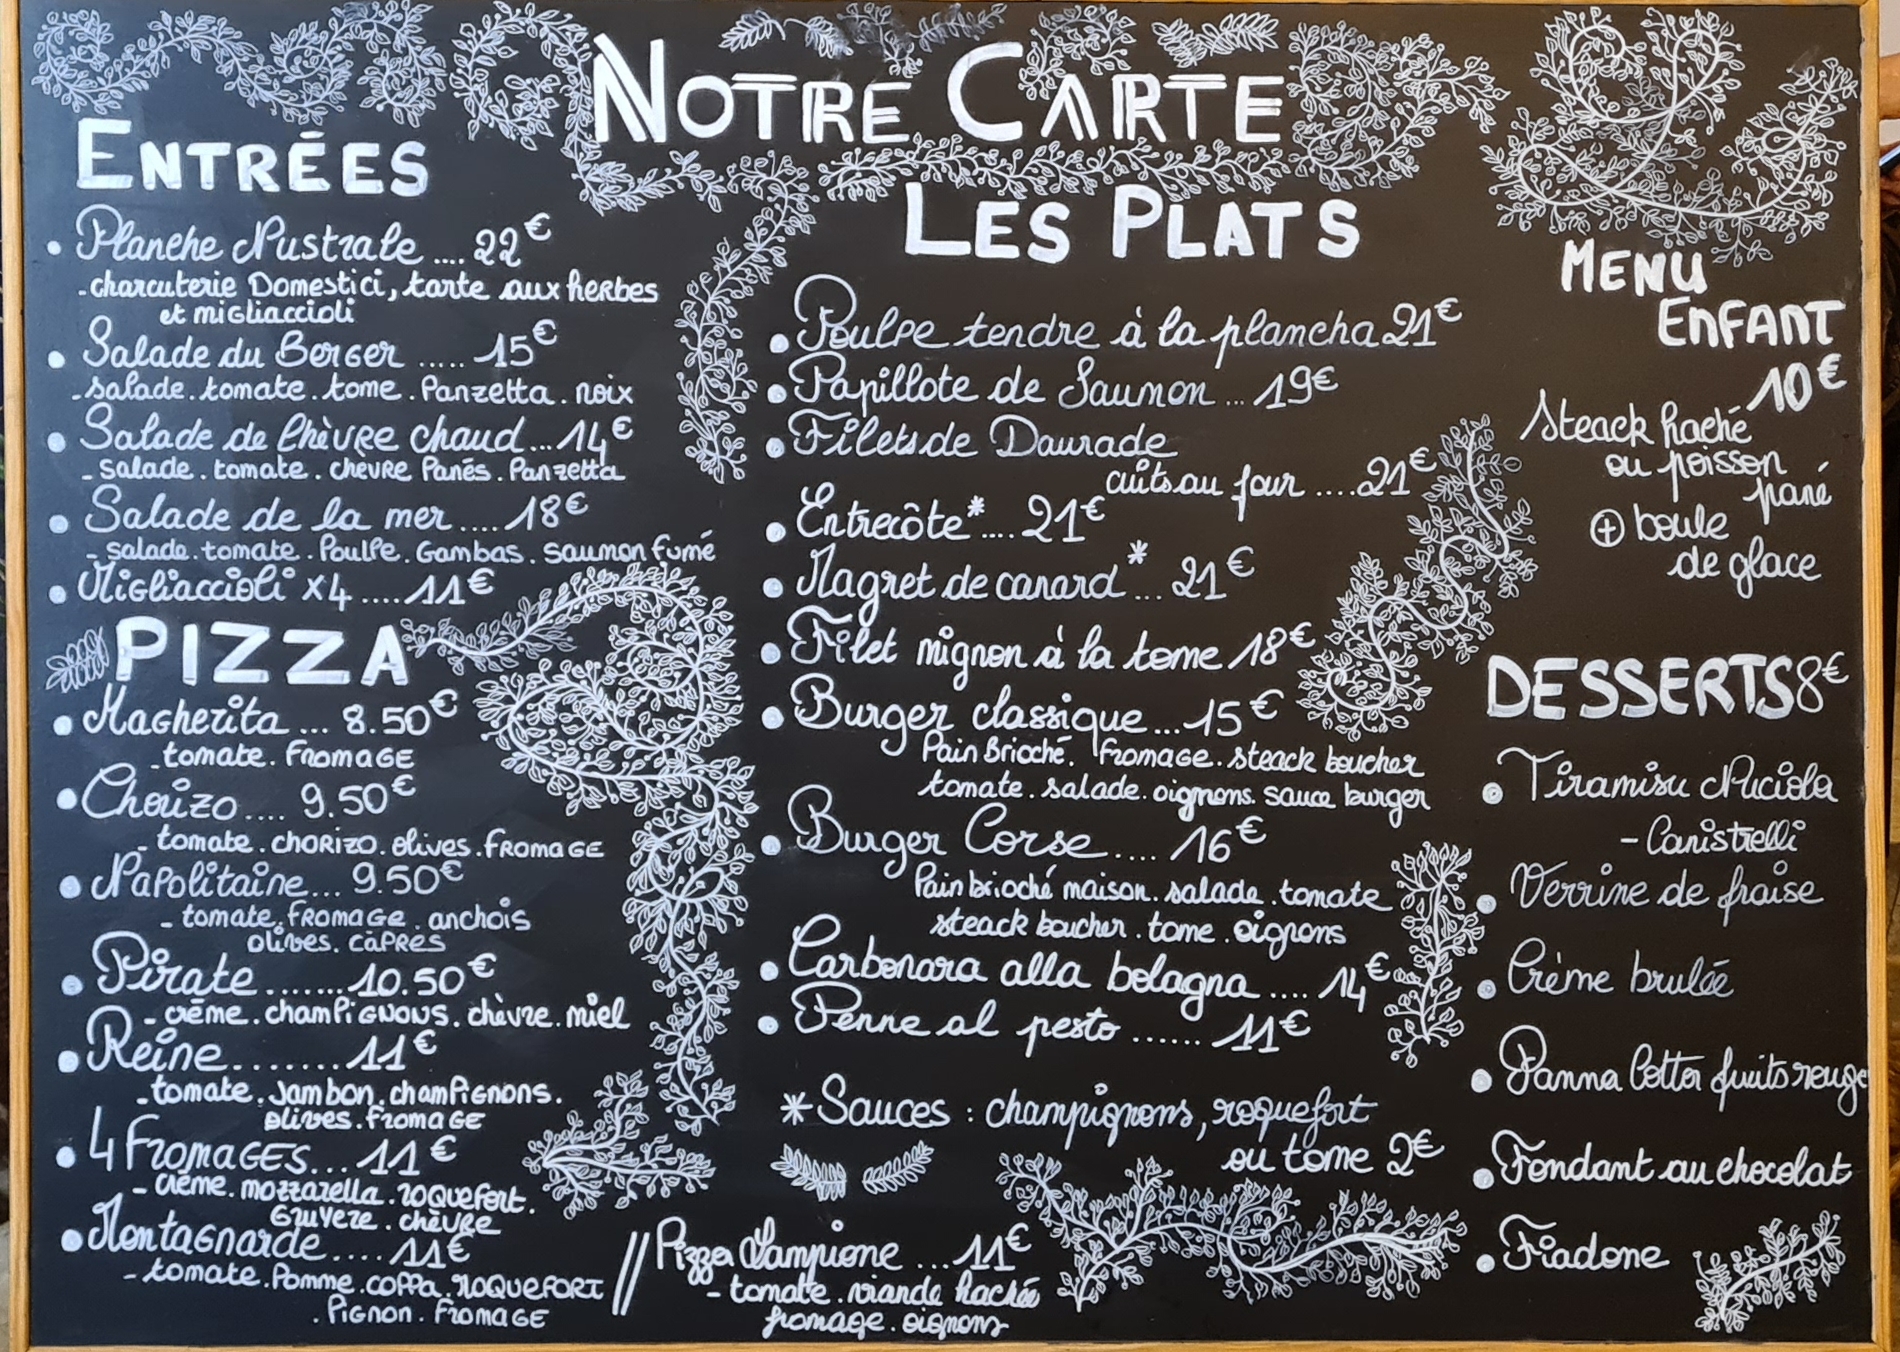 NOTRE CARTE
ENTRÉES
• Planche Nustrale .... 22€
- charcuterie Domestici, tarte aux herbes
et migliaccioli
• Salade du Berger ..... 15€
- salade. tomate. tome. Panzetta. noix
• Salade de Chèvre chaud... 14€
- salade. tomate. chèvre Panés. Panzetta
• Salade de la mer .... 18€
- salade. tomate. Poulpe. Gambas. saumon fumé
• Migliaccioli x4 .... 11€
PIZZA
• Magherita ... 8.50€
- tomate. Fromage
• Chorizo .... 9.50€
- tomate. chorizo. olives. fromage
• Napolitaine... 9.50€
- tomate. fromage. anchois
olives. câpres
• Pirate ....... 10.50€
- crème. champignons. chèvre. miel
• Reine........ 11€
- tomate. Jambon. champignons.
olives. fromage
• 4 Fromages... 11€
- crème. mozzarella. roquefort.
Gruyere. chèvre
• Montagnarde .... 11€
- tomate. Pomme. coppa. roquefort
. Pignon. Fromage
// Pizza Lampione ... 11€
- tomate. viande hachée
fromage. oignons
LES PLATS
• Poulpe tendre à la plancha 21€
• Papillote de Saumon ... 19€
• Filets de Daurade
cuits au four .... 21€
• Entrecôte* .... 21€
• Magret de canard* ... 21€
• Filet mignon à la tome 18€
• Burger classique ... 15€
Pain Brioché. fromage. steack boucher
tomate. salade. oignons. sauce burger
• Burger Corse .... 16€
Pain brioché maison. salade. tomate
steack boucher. tome. oignons
• Carbonara alla bolagna .... 14€
• Penne al pesto ...... 11€
* Sauces : champignons, roquefort
ou tome 2€
MENU
ENFANT
10€
Steack haché
ou poisson
pané
+ boule
de glace
DESSERTS 8€
• Tiramisu Nuciola
- Canistrelli
• Verrine de fraise
• Crème brulée
• Panna Cotta fruits rouge
• Fondant au chocolat
• Fiadone